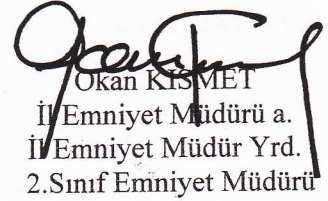 Okan KISMET
İl Emniyet Müdürü a.
İl Emniyet Müdür Yrd.
2.Sınıf Emniyet Müdürü